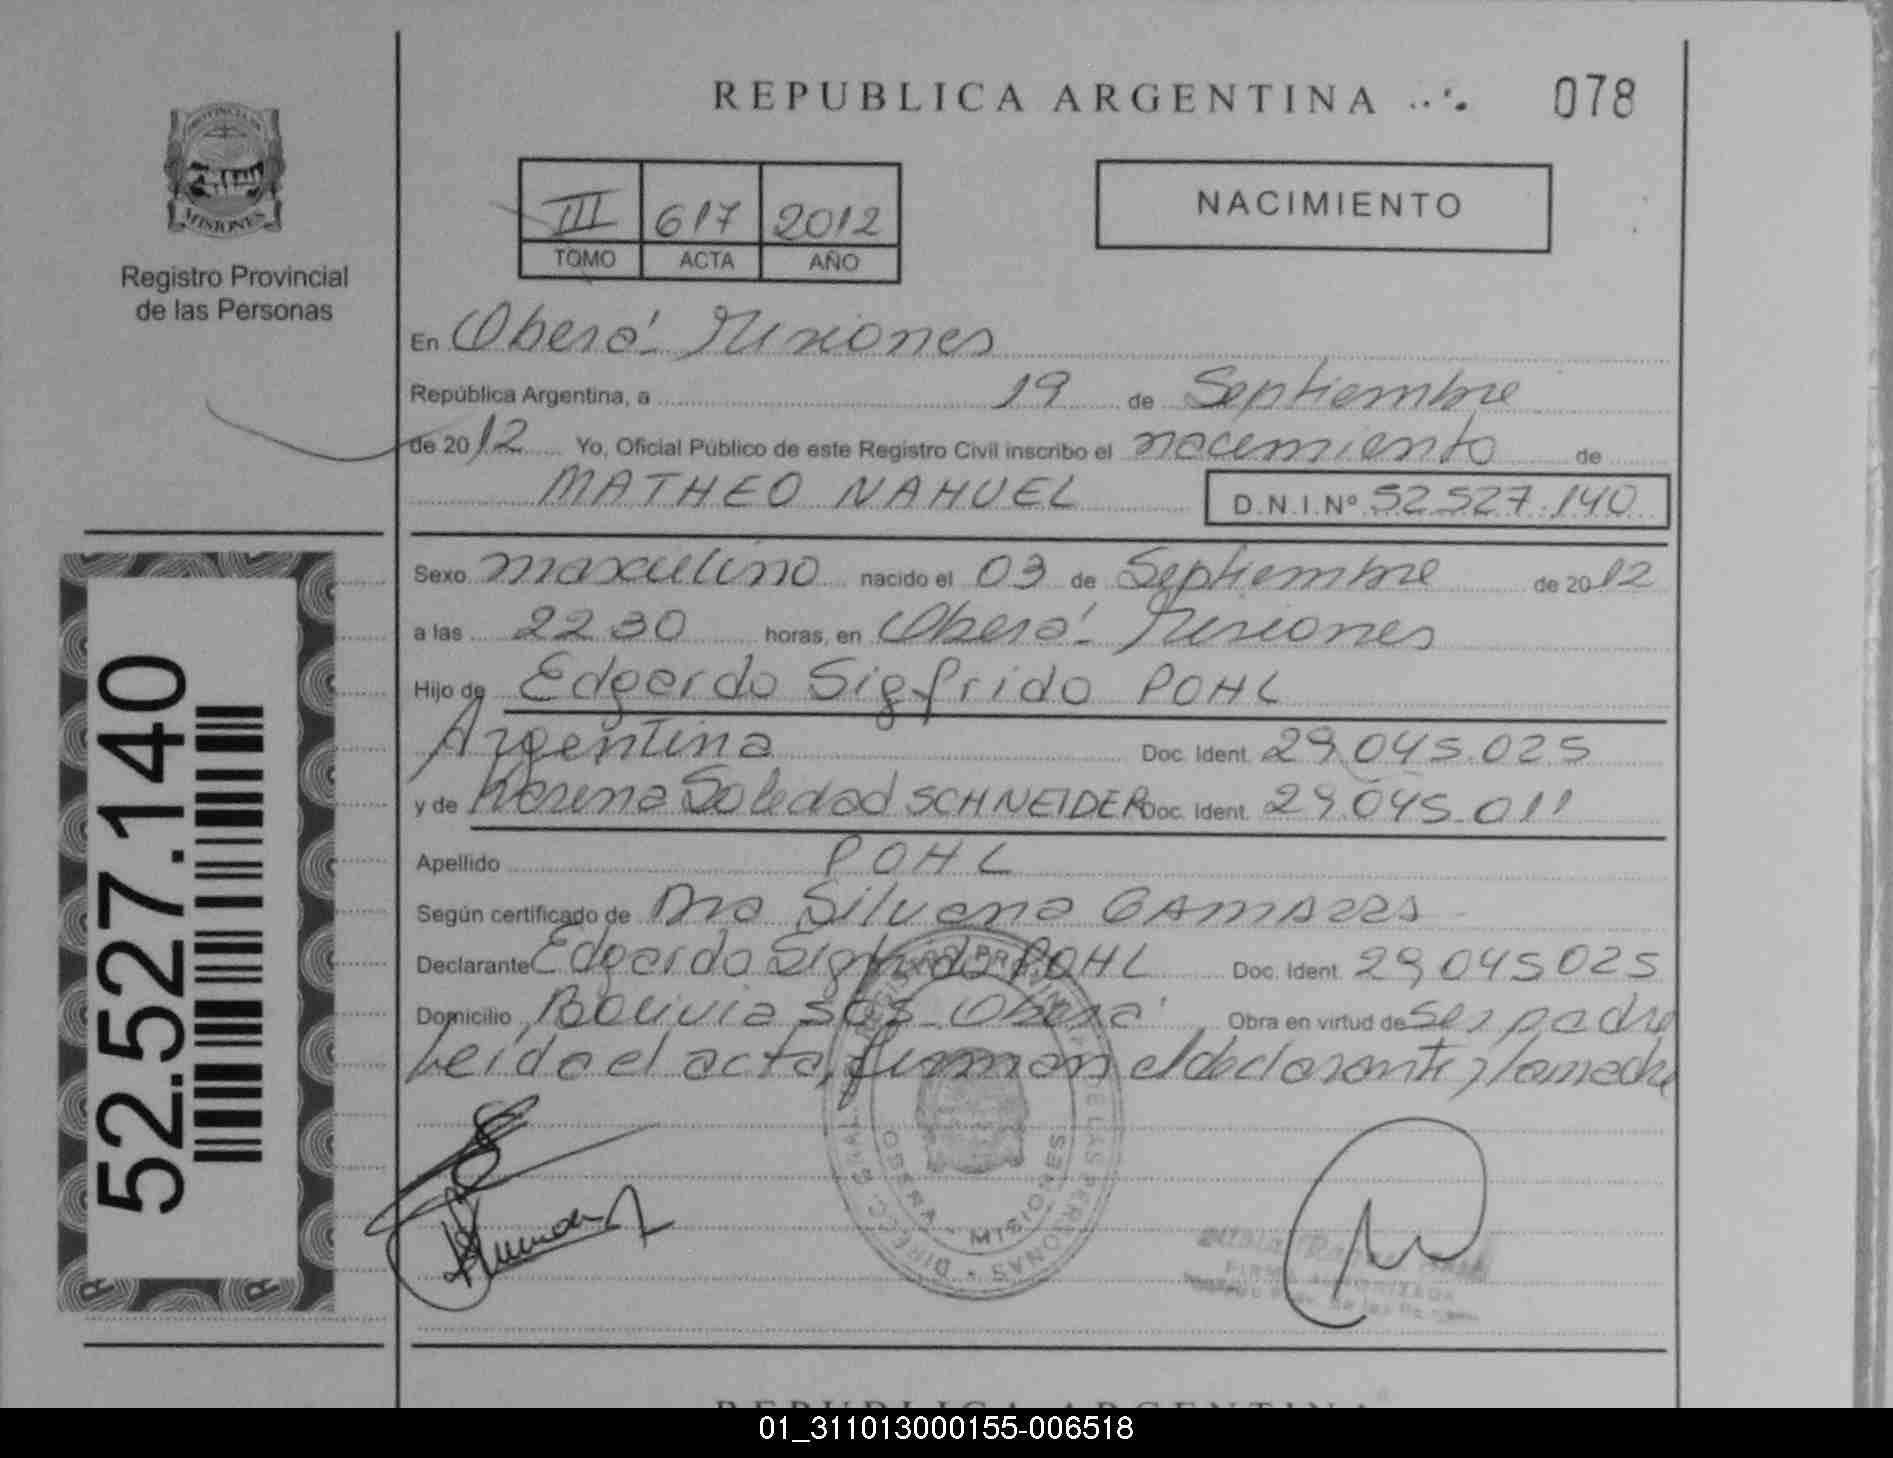 REPUBLICA ARGENTINA
078
PROVINCIA DE
MISIONES
Registro Provincial
de las Personas
III 617 2012
TOMO ACTA AÑO
NACIMIENTO
En Oberá - Misiones
República Argentina, a 19 de Septiembre
de 2012 Yo, Oficial Público de este Registro Civil inscribo el nacimiento de
MATHEO NAHUEL D.N.I.Nº 52.527.140
Sexo masculino nacido el 03 de Septiembre de 2012
a las 22 30 horas, en Oberá - Misiones
Hijo de Edgardo Sigfrido POHL
Argentina Doc. Ident. 29.045.025
y de Lorena Soledad SCHNEIDER Doc. Ident. 29.045.011
Apellido POHL
Según certificado de Dra Silvana GAMARRA
Declarante Edgardo Sigfrido POHL Doc. Ident. 29.045025
Domicilio Bolivia 505 - Oberá Obra en virtud de ser padre
Leída el acta, firman el declarante y la madre
52.527.140
MISIONES
DE LAS PERSONAS
01_311013000155-006518
REPUBLICA ARGENTINA